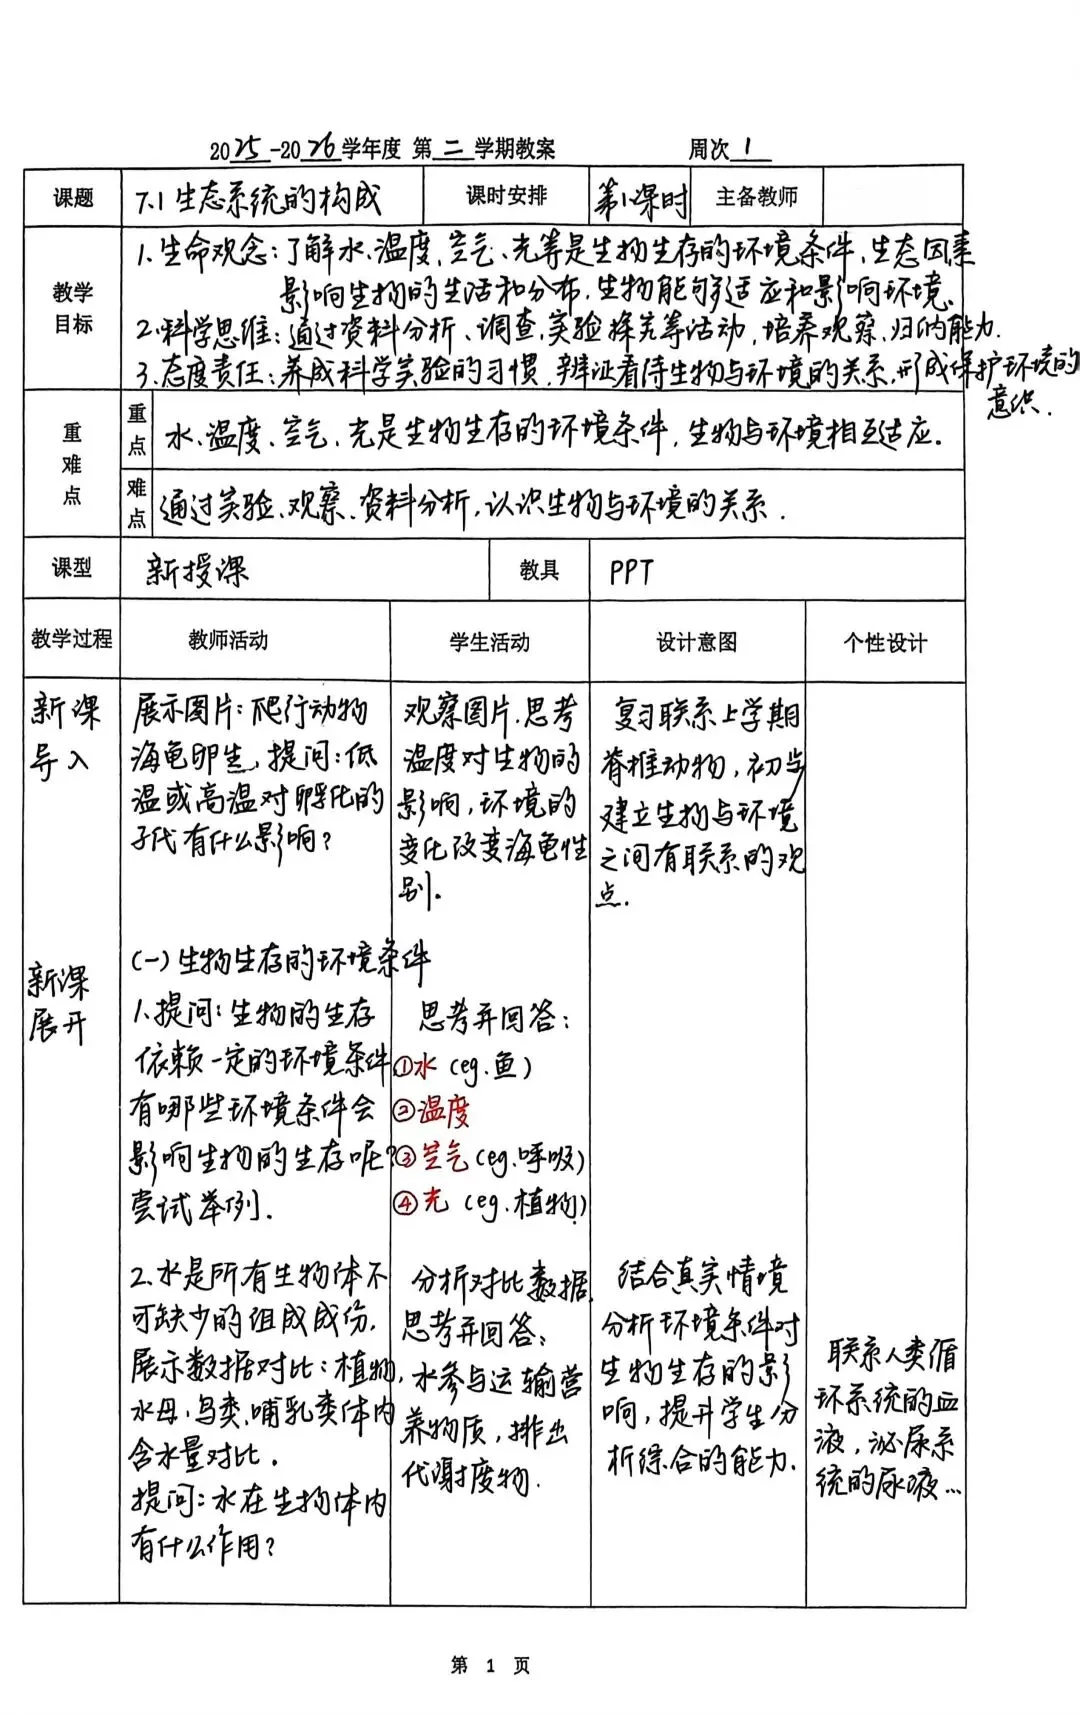 2025-2026学年度 第二学期教案 周次1
课题 7.1生态系统的构成 课时安排 第1课时 主备教师
教学
目标
1.生命观念:了解水、温度、空气、光等是生物生存的环境条件,生态因素
影响生物的生活和分布,生物能够适应和影响环境.
2.科学思维:通过资料分析、调查、实验探究等活动,培养观察、归纳能力.
3.态度责任:养成科学实验的习惯,辩证看待生物与环境的关系,形成保护环境的
意识.
重
难
点
重
点
水、温度、空气、光是生物生存的环境条件,生物与环境相互适应.
难
点
通过实验、观察、资料分析,认识生物与环境的关系.
课型 新授课 教具 PPT
教学过程 教师活动 学生活动 设计意图 个性设计
新课
导入
展示图片:爬行动物
海龟卵生,提问:低
温或高温对孵化的
子代有什么影响?
观察图片.思考
温度对生物的
影响,环境的
变化改变海龟性
别.
复习联系上学期
脊椎动物,初步
建立生物与环境
之间有联系的观
点.
新课
展开
(一)生物生存的环境条件
1.提问:生物的生存
依赖一定的环境条件,
有哪些环境条件会
影响生物的生存呢?
尝试举例.
思考并回答:
①水(eg.鱼)
②温度
③空气(eg.呼吸)
④光(eg.植物)
2.水是所有生物体不
可缺少的组成成份.
展示数据对比:植物,
水母,鸟类,哺乳类体内
含水量对比.
提问:水在生物体内
有什么作用?
分析对比数据,
思考并回答:
水参与运输营
养物质,排出
代谢废物.
结合真实情境
分析环境条件对
生物生存的影
响,提升学生分
析综合的能力.
联系人类循
环系统的血
液,泌尿系
统的尿液…
第 1 页